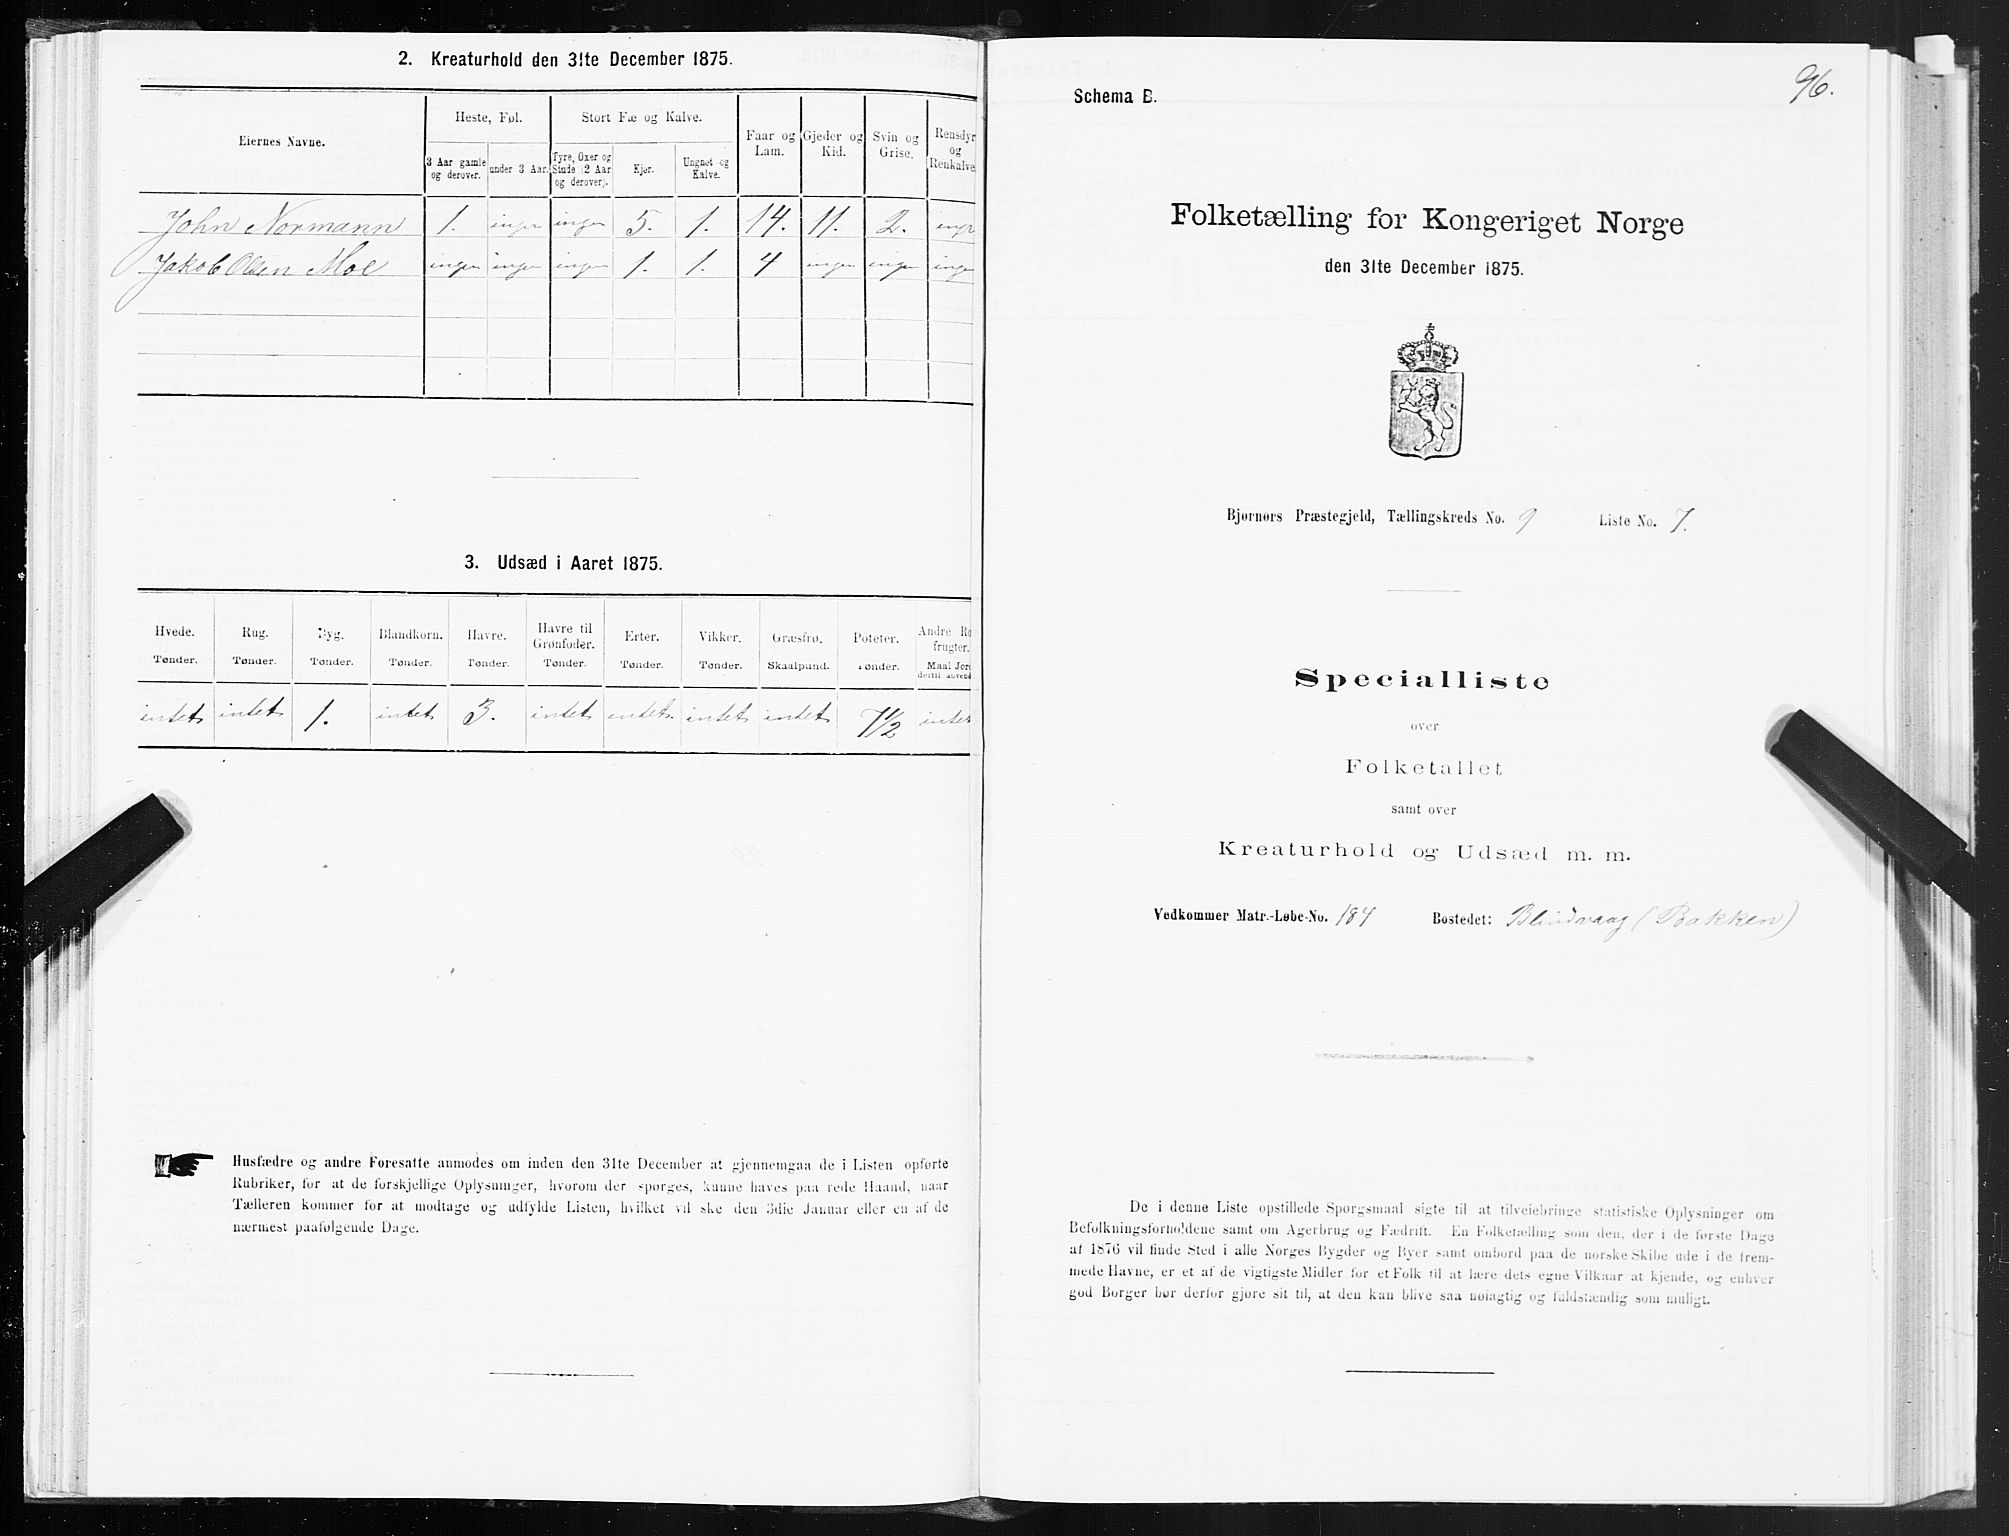 2. Kreaturhold den 31te December 1875.
Eiernes Navne.
Heste, Føl.
Stort Fæ og Kalve.
Faar og Lam.
Gjeder og Kid.
Svin og Grise.
Rensdyr og Renkalve
3 Aar gamle og derover.
under 3 Aar.
Tyre, Oxer og Stude (2 Aar og derover).
Kjør.
Ungnøt og Kalve.
John Normann 1. ingen ingen 5. 1. 14. 11. 2. ingen
Jakob Olsen Moe ingen ingen ingen 1. 1. 4 ingen ingen ingen
3. Udsæd i Aaret 1875.
Hvede. Rug. Byg. Blandkorn. Havre. Havre til Grønfoder. Erter. Vikker. Græsfrø. Poteter. Andre Ro frugter.
Tønder. Tønder. Tønder. Tønder. Tønder. Tønder. Tønder. Tønder. Skaalpund. Tønder. Maal Jord dertil anvend
intet intet 1. intet 3. intet intet. intet intet 7 1/2 intet
Husfædre og andre Foresatte anmodes om inden den 31te December at gjennemgaa de i Listen opførte
Rubriker, for at de forskjellige Oplysninger, hvorom der spørges, kunne haves paa rede Haand, naar
Tælleren kommer for at modtage og udfylde Listen, hvilket vil ske den 3die Januar eller en af de
nærmest paafølgende Dage.
96.
Schema B.
Folketælling for Kongeriget Norge
den 31te December 1875.
Bjørnørs Præstegjeld, Tællingskreds No. 9 Liste No. 7.
Specialliste
over
Folketallet
samt over
Kreaturhold og Udsæd m. m.
Vedkommer Matr.-Løbe-No. 184 Bostedet: Blindvaag (Bakken)
De i denne Liste opstillede Spørgsmaal sigte til at tilveiebringe statistiske Oplysninger om
Befolkningsforholdene samt om Agerbrug og Fædrift. En Folketælling som den, der i de første Dage
af 1876 vil finde Sted i alle Norges Bygder og Byer samt ombord paa de norske Skibe ude i de frem-
mede Havne, er et af de vigtigste Midler for et Folk til at lære dets egne Vilkaar at kjende, og enhver
god Borger bør derfor gjøre sit til, at den kan blive saa nøiagtig og fuldstændig som muligt.